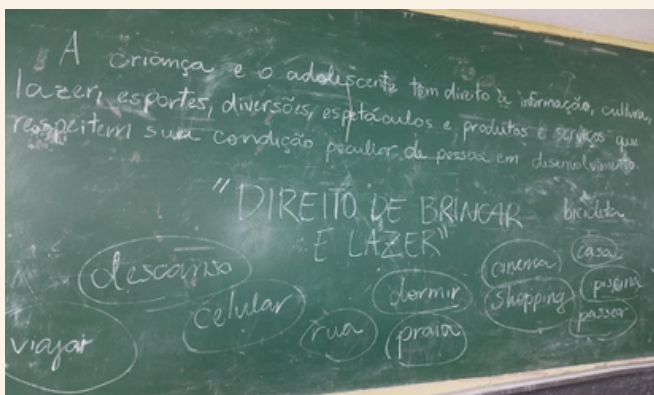 A criança e o adolescente tem direito à informação, cultura,
lazer, esportes, diversões, espetáculos e produtos e serviços que
respeitem sua condição peculiar de pessoa em disenvolvimento.
"DIREITO DE BRINCAR
E LAZER"
bicicleta
descanso
viajar
celular
rua
dormir
praia
cinema
shopping
casa
piscina
passear